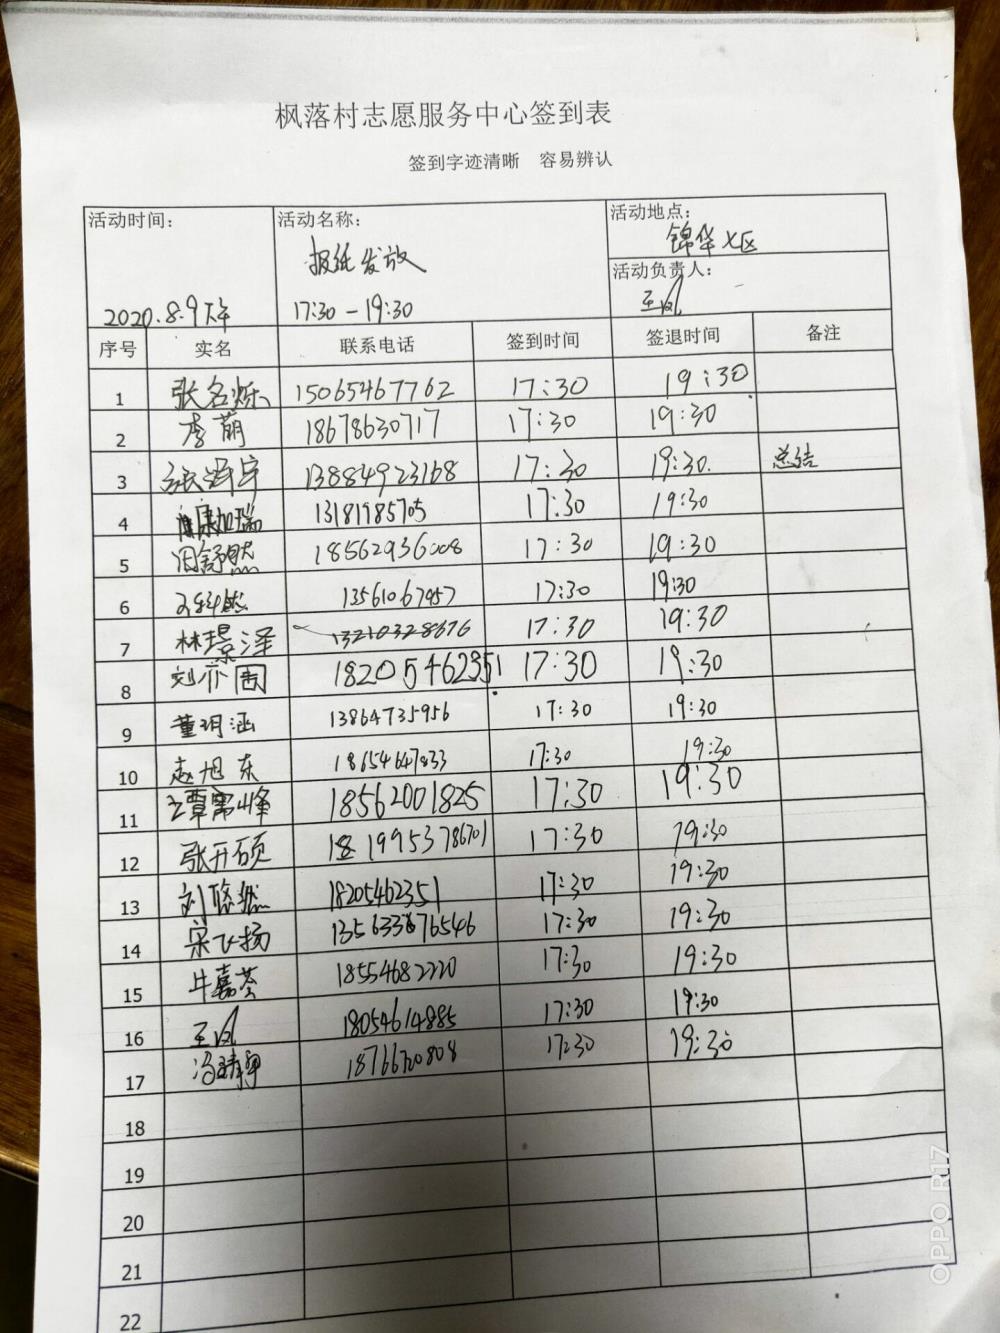 枫落村志愿服务中心签到表
签到字迹清晰 容易辨认
活动时间: 活动名称: 活动地点:
报纸发放 锦华七区
活动负责人:
2020.8.9下午 17:30-19:30 王凤
序号 实名 联系电话 签到时间 签退时间 备注
1 张名烁 15065467762 17:30 19:30
2 李萌 18678630717 17:30 19:30
3 张泽宇 13884923168 17:30 19:30. 总结
4 康加瑞 13181985705 17:30 19:30
5 闫舒然 18562936008 17:30 19:30
6 13561067957 17:30 19:30
7 林璟泽 13210328676 17:30 19:30
8 刘亦囡 18205462351 17:30 19:30
9 董玥涵 13864735956 17:30 19:30
10 赵旭东 18654647833 17:30 19:30
11 18562001825 17:30 19:30
12 张开硕 17:30 19:30
13 刘悠然 18205462351 17:30 19:30
14 宋飞扬 17:30 19:30
15 牛嘉荟 18554682220 17:30 19:30
16 王凤 18054614885 17:30 19:30
17 冯靖寧 17:30 19:30
18
19
20
21
22
OPPO R17